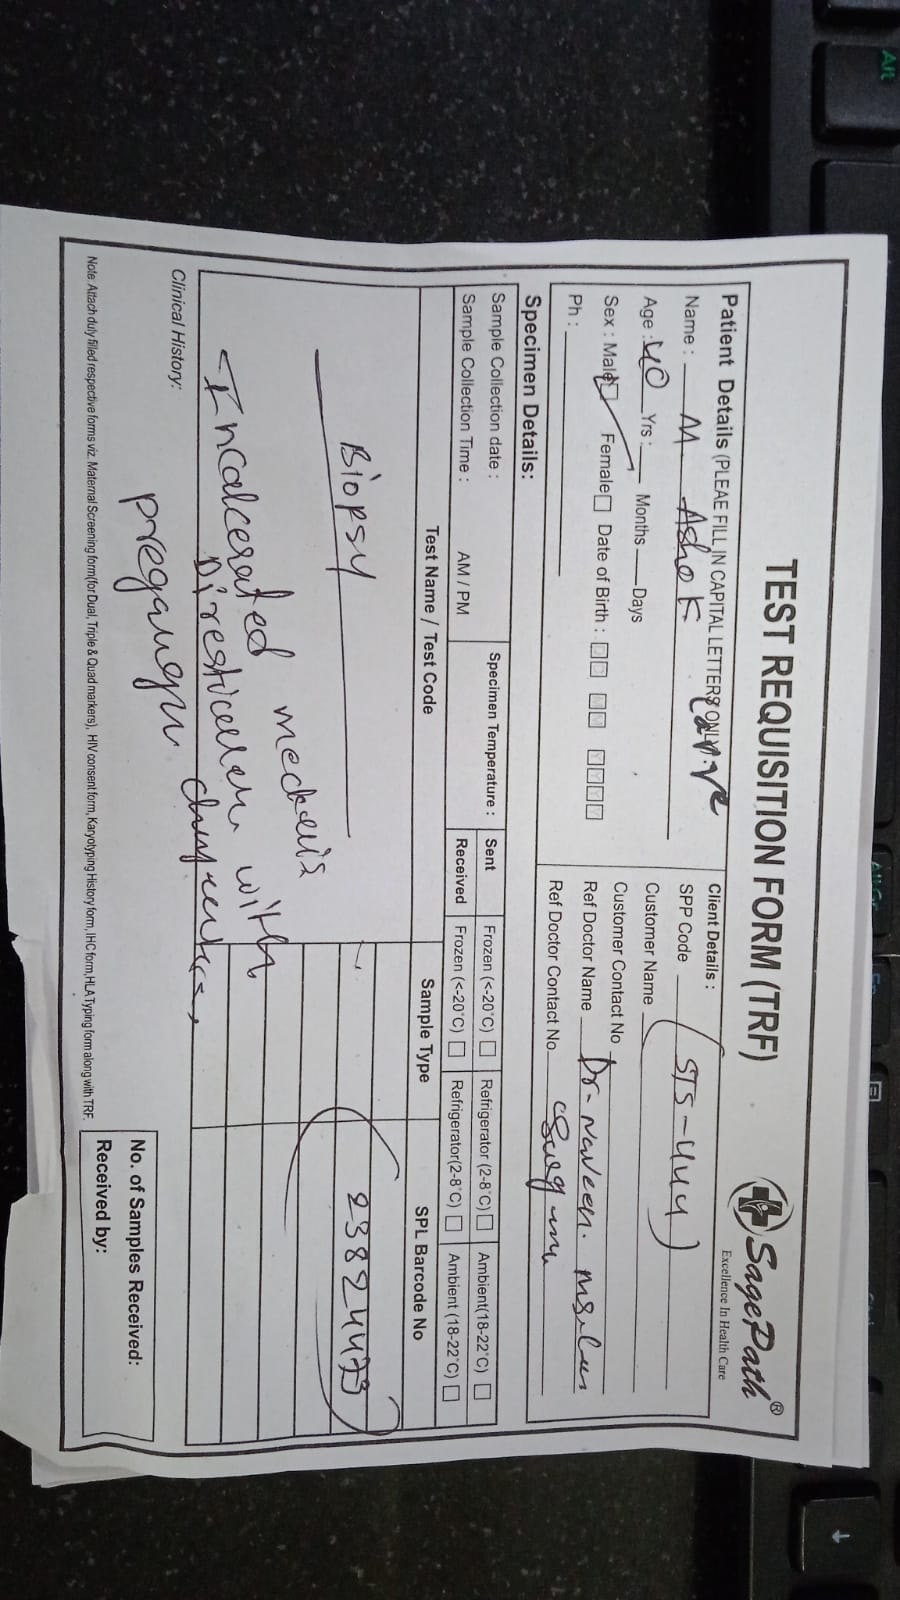 TEST REQUISITION FORM (TRF)
SagePath®
Excellence In Health Care
Patient Details (PLEAE FILL IN CAPITAL LETTERS ONLY)
Name : M. Ashok
Age : 40 Yrs : Months Days
Sex : Male Female Date of Birth : DD MM YYYY
Ph :
Client Details :
SPP Code (STS-444)
Customer Name
Customer Contact No
Ref Doctor Name Dr. Naveen.
Ref Doctor Contact No
Specimen Details:
Sample Collection date :
Sample Collection Time : AM / PM
Specimen Temperature :
Sent Frozen (<-20°C) Refrigerator (2-8°C) Ambient(18-22°C)
Received Frozen (<-20°C) Refrigerator(2-8°C) Ambient (18-22°C)
Test Name / Test Code Sample Type SPL Barcode No
Biopsy
with
Clinical History:
Note: Attach duly filled respective forms viz. Maternal Screening form(for Dual, Triple & Quad markers), HIV consent form, Karyotyping History form, IHC form, HLA Typing form along with TRF.
No. of Samples Received:
Received by:
Alt